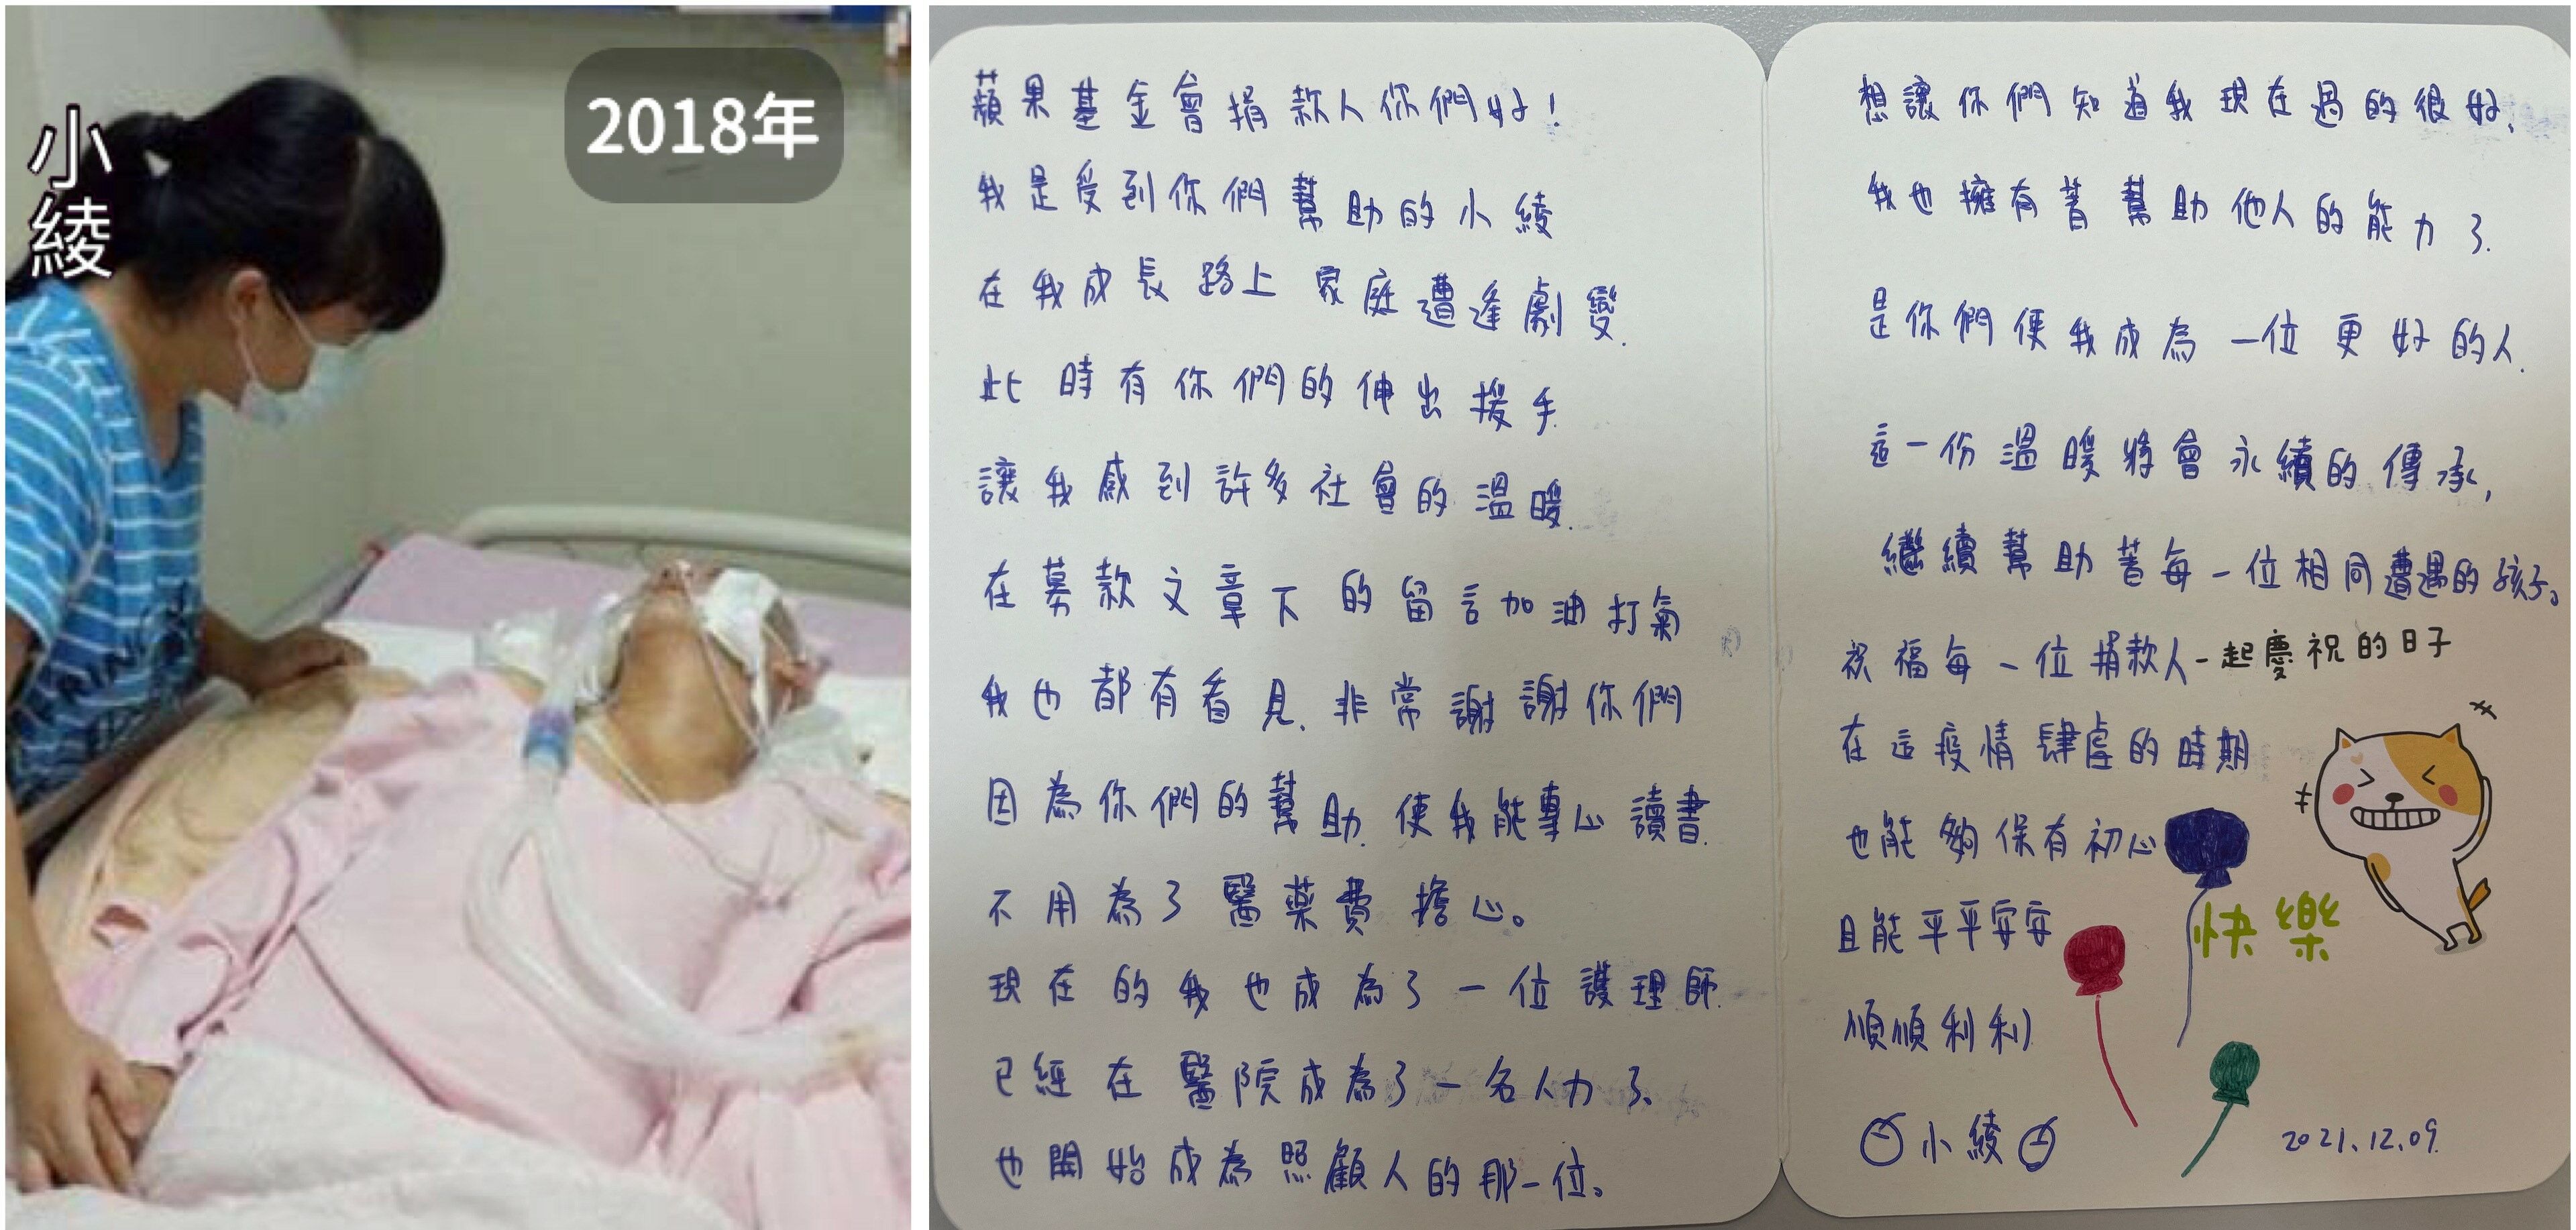 小綾
2018年
蘋果基金會捐款人你們好!
我是受到你們幫助的小綾
在我成長路上家庭遭逢劇變.
此時有你們的伸出援手
讓我感到許多社會的溫暖.
在募款文章下的留言加油打氣
我也都有看見.非常謝謝你們
因為你們的幫助.使我能專心讀書.
不用為了醫藥費擔心。
現在的我也成為了一位護理師.
已經在醫院成為了一名人力了、
也開始成為照顧人的那一位。
想讓你們知道我現在過的很好、
我也擁有著幫助他人的能力了.
是你們使我成為一位更好的人.
這一份溫暖將會永續的傳承,
繼續幫助著每一位相同遭遇的孩子。
祝福每一位捐款人一起慶祝的日子
在這疫情肆虐的時期
也能夠保有初心
快樂
且能平平安安
順順利利
小綾
2021.12.09.